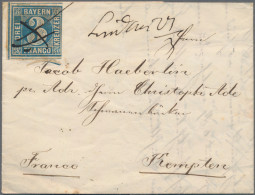 BAYERN
DREI
KREUZER
FRANCO
Lindau 27/
Herrn
Jacob Haeberlin
pr. Adr. Herrn Christoph Ade
Franco Kempten